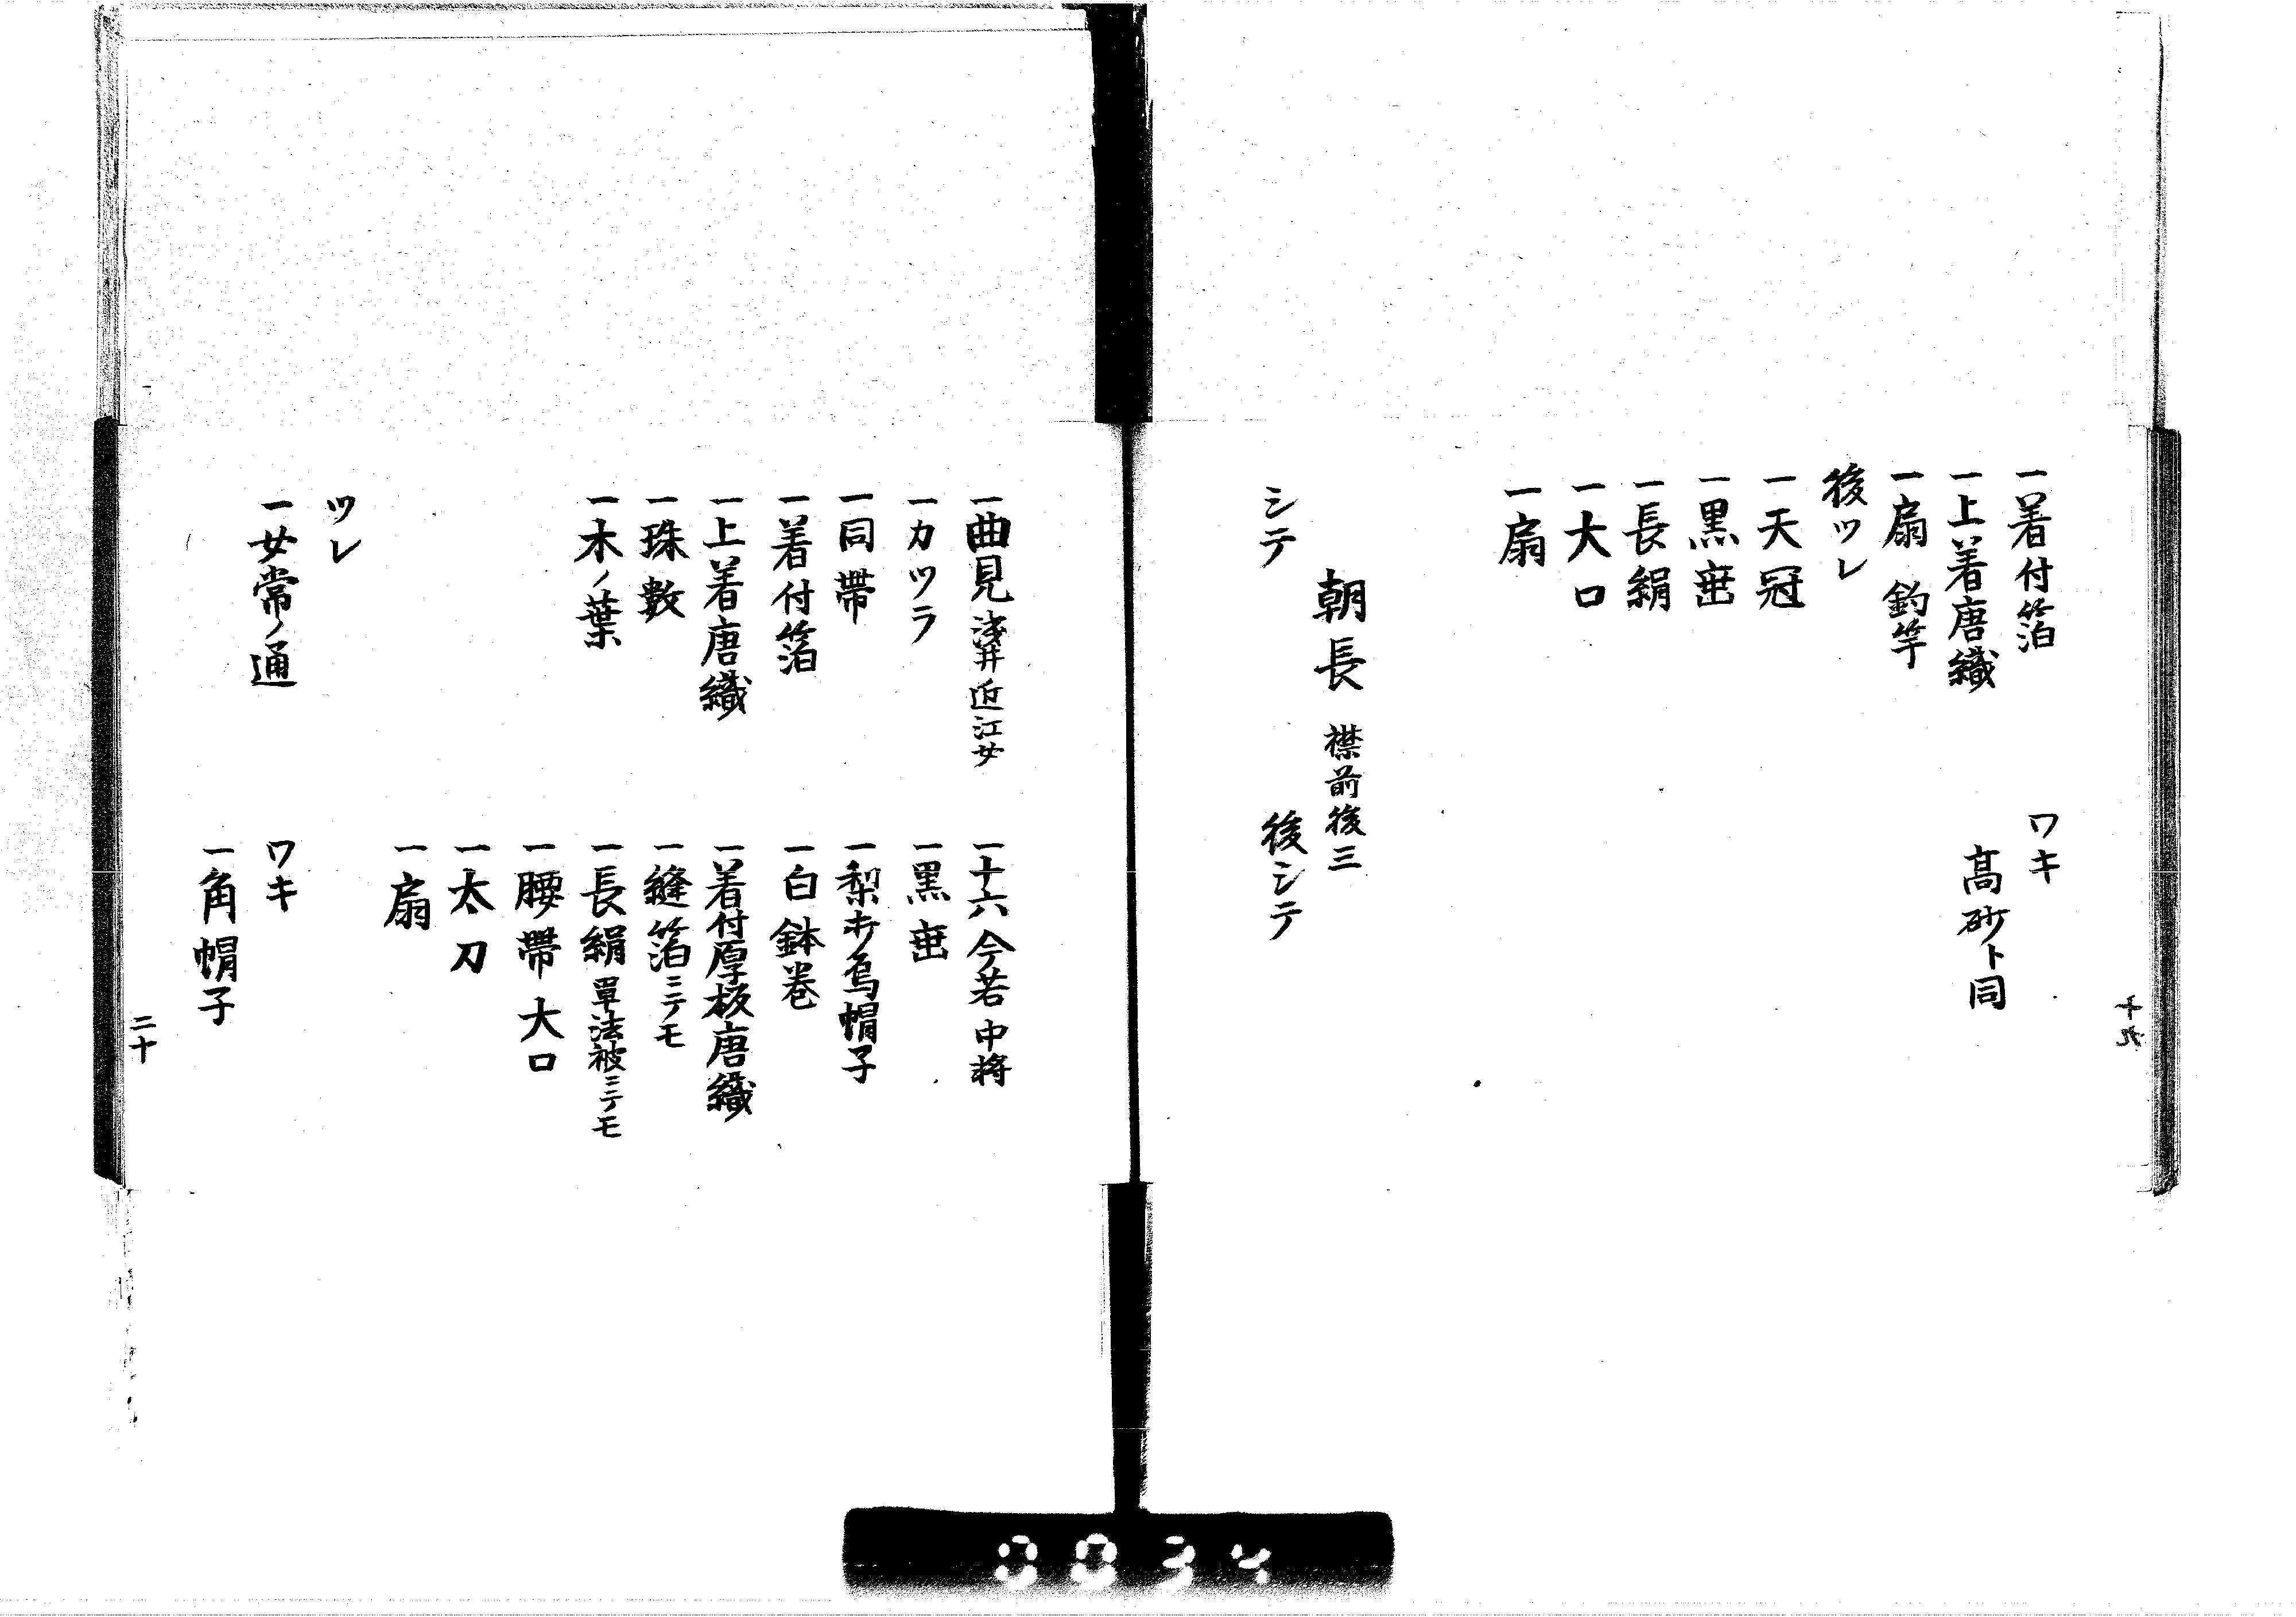 一着付箔
一上着唐織
一扇 釣竿
後ツレ
一天冠
一黒垂
一長絹
一大口
一扇
ワキ
髙砂ト同
十九
朝長 襟前後三
シテ
一曲見 浅井 近江女
一カツラ
一同帯
一着付箔
一上着唐織
一珠數
一木ノ葉
後シテ
一十六 今若 中将
一黒垂
一梨打烏帽子
一白鉢巻
一着付厚板唐織
一縫箔ニテモ
一長絹 單法被ニテモ
一腰帯 大口
一太刀
一扇
ツレ
一女常ノ通
ワキ
一角帽子
二十